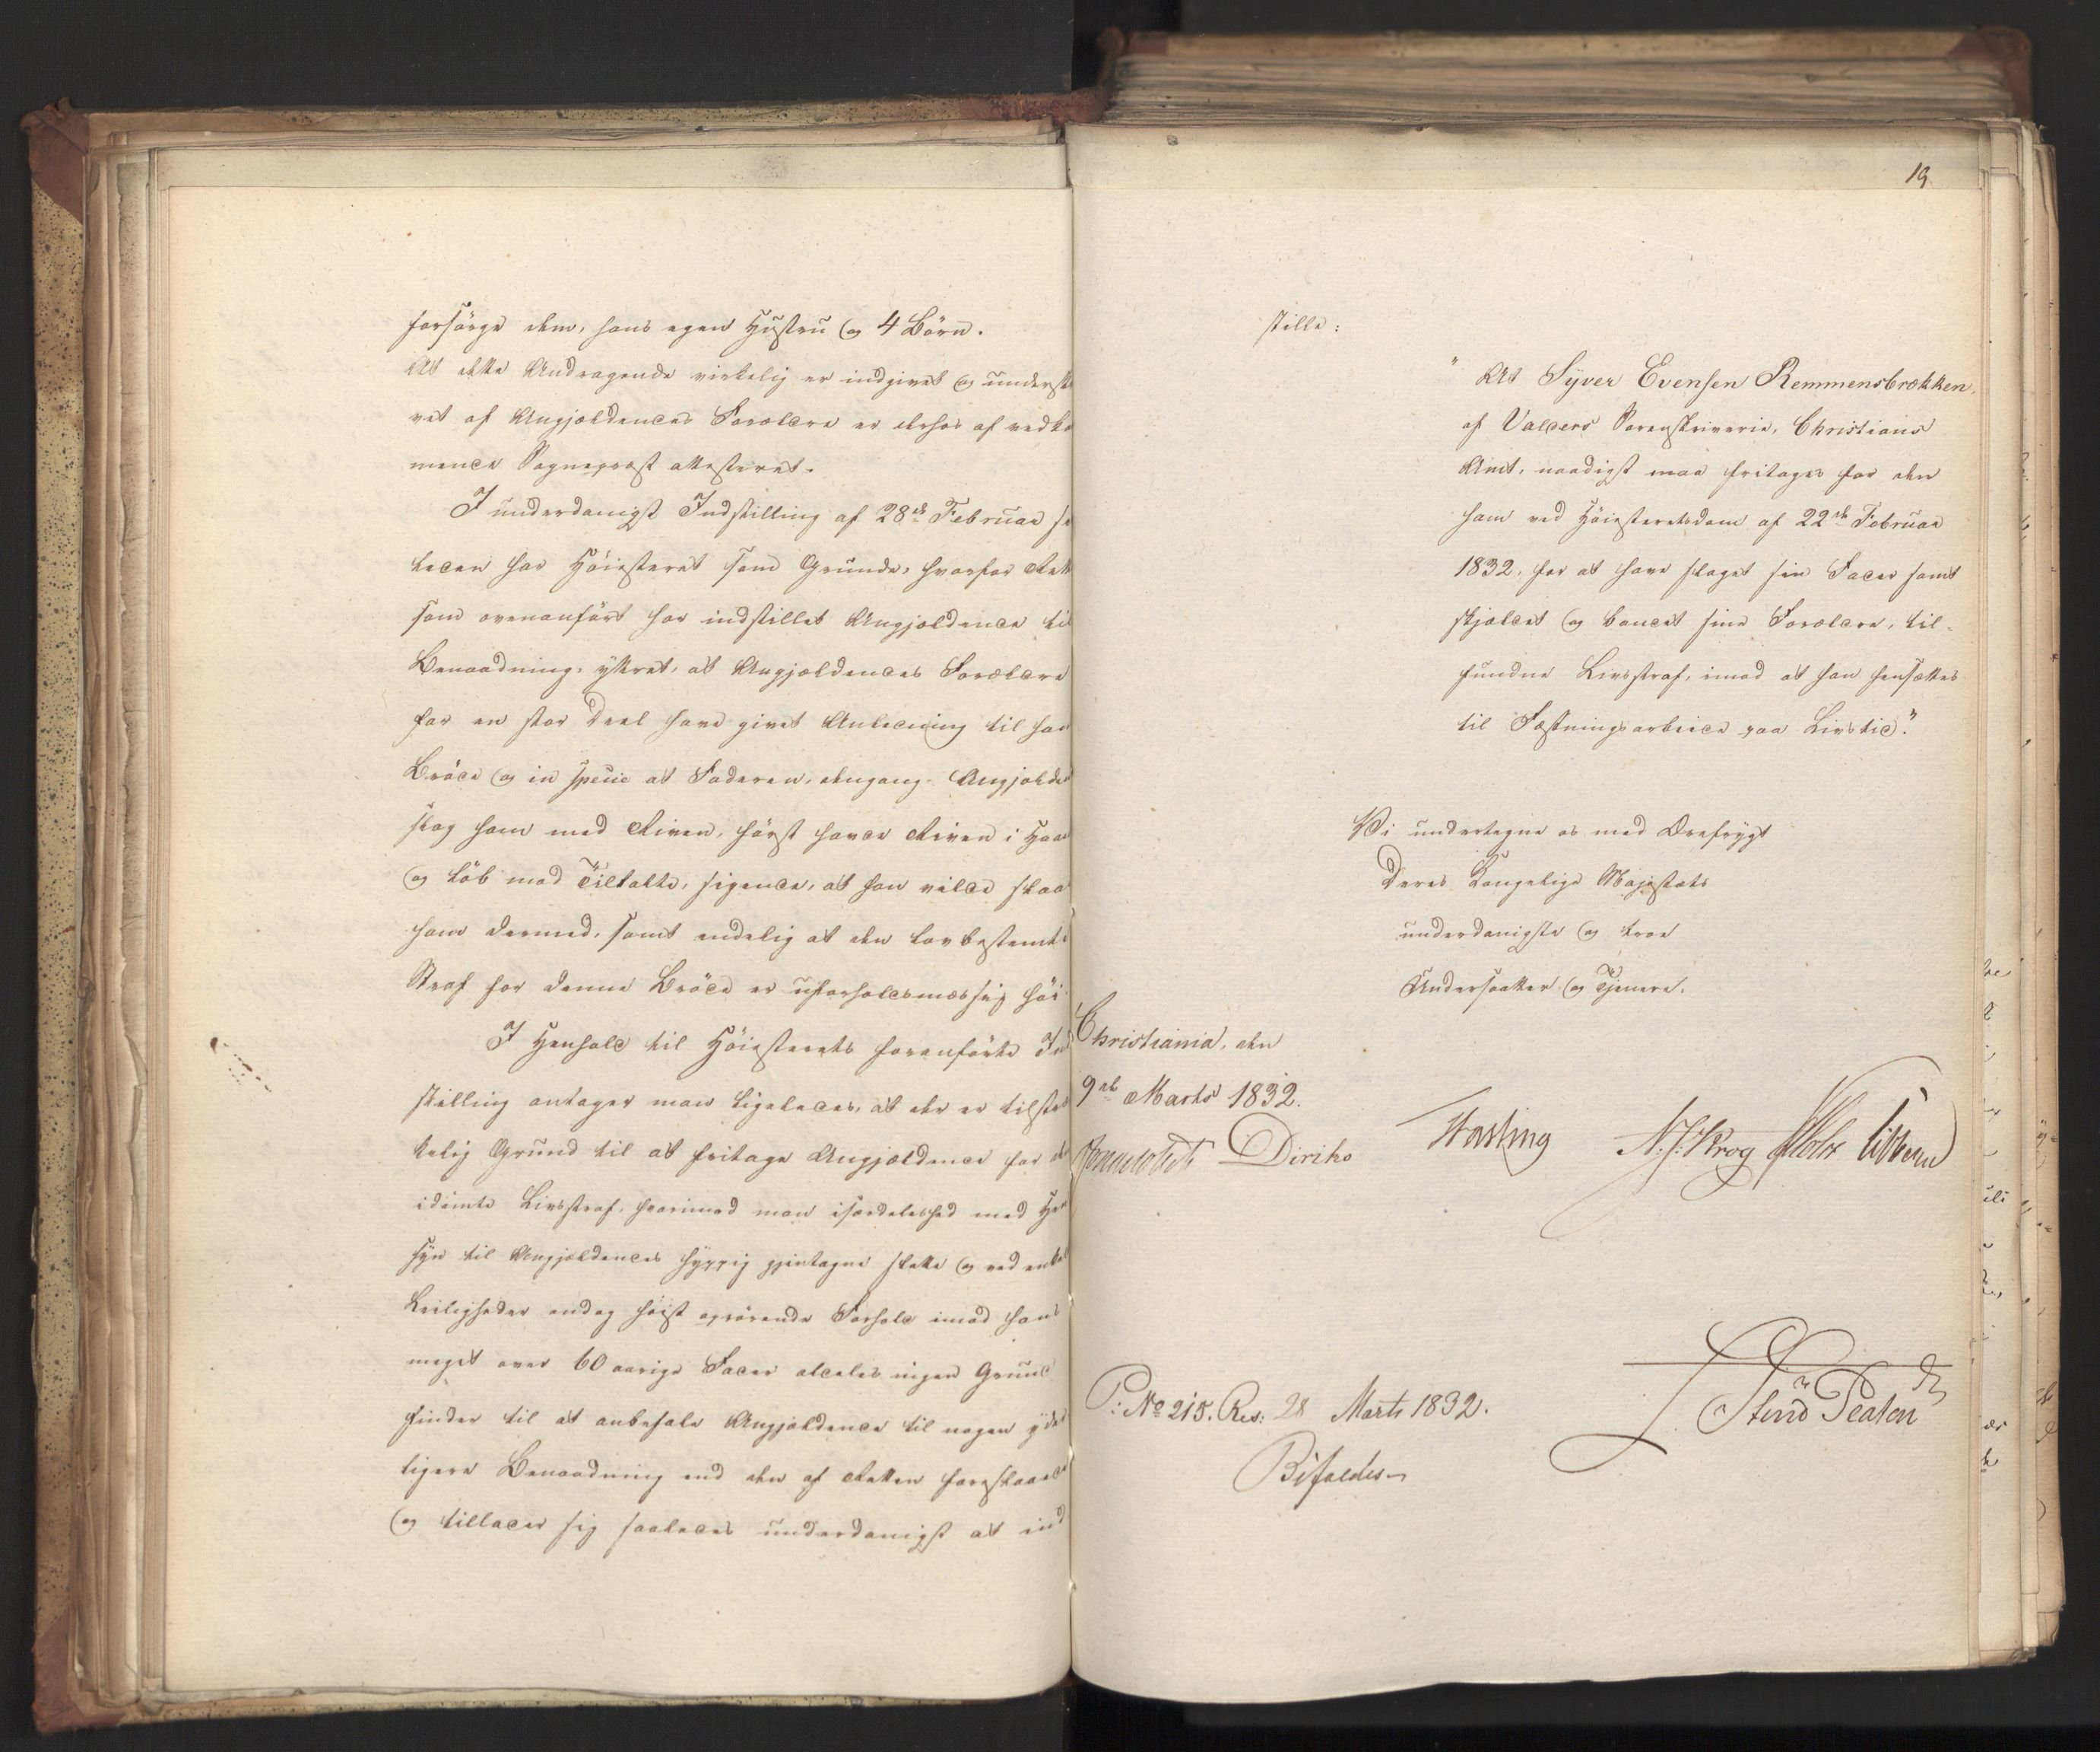 forsörge dem, hans egen Hustru og 4 Börn.
At dette Andragende virkelig er indgivet og underskre
vet af Angjældendes Forældre er derhos af vedkom
mende Sogneprest attesteret.
I underdanigst Indstilling af 28de Februar
har Höiesteret som Grunde, hvorfor Retten
som ovenanfört har indstillet Angjældende til
Benaadning, yttret, at Angjældendes Forældre
for en stor Deel have givet Anledning til hans
Bröde og in specie at Faderen, dengang Angjældende
slog ham med Riven, först havde Riven i Haand
og löb mod Tiltalte, sigende, at han vilde slaae
ham dermed, samt endelig at den lovbestemte
Straf for denne Bröde er uforholdsmæssig höi.
I Henhold til Höiesterets foranförte Ind
stilling antager man ligeledes, at der er tilstræk
kelig Grund til at fritage Angjældende for den
idömte Livsstraf, hvorimod man isærdeleshed med Hen
syn til Angjældendes hyppig gjentagne slette og ved enkelte
Leiligheder endog höist oprörende Forhold imod hans
meget over 60 aarige Fader aldeles ingen Grund
finder til at anbefale Angjældende til nogen yder
ligere Benaadning end den af Retten foreslaaede
og tillader sig saaledes underdanigst at ind
19
stille:
"At Syver Evensen Remmensbrækken,
af Valders Sorenskriverie, Christians
Amt, naadigst maa fritages for den
ham ved Höiesteretsdom af 22de Februar
1832, for at have slaget sin Fader samt
skjældet og bandet sine Forældre, til-
fundne Livsstraf, imod at han hensættes
til Fæstningsarbeide paa Livstid."
Vi undertegne os med Ærefrygt
Deres Kongelige Majestæts
underdanigste og troe
Undersaatter og Tjenere.
Christiania, den
9de Marts 1832.
Diriks
Fasting N. J. Krog Holst Vibe
P: No 215. Res: 28 Marts 1832.
Bifaldes